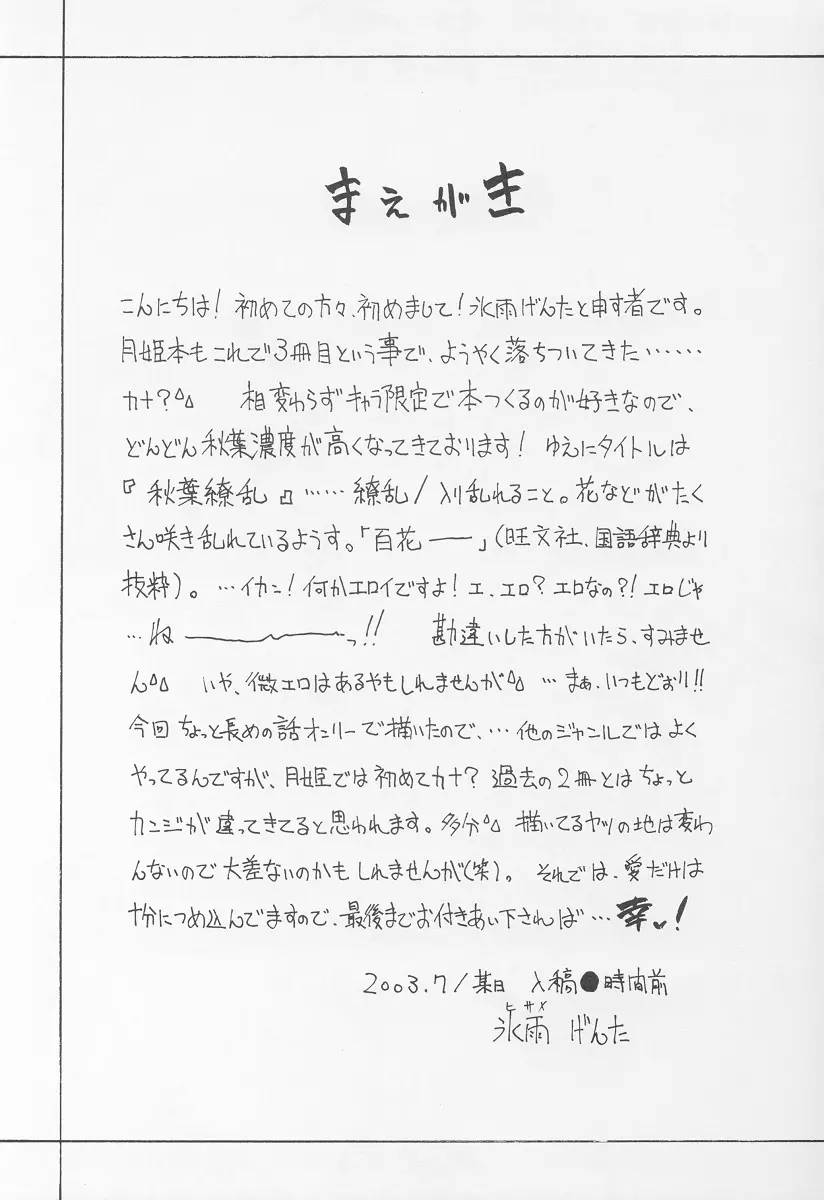 まえがき
こんにちは! 初めての方々、初めまして!氷雨げんたと申す者です。
月姫本もこれで3冊目という事で、ようやく落ちついてきた……
カナ? 相変わらずキャラ限定で本つくるのが好きなので、
どんどん秋葉濃度が高くなってきております! ゆえにタイトルは
『秋葉繚乱』……繚乱/入り乱れること。花などがたく
さん咲き乱れているようす。「百花――」(旺文社、国語辞典より
抜粋)。…イカン!何かエロイですよ!エ、エロ?エロなの?!エロじゃ
…ね――――っ!! 勘違いした方がいたら、すみませ
ん いや、微エロはあるやもしれませんが …まぁ、いつもどおり!!
今回ちょっと長めの話オンリーで描いたので、…他のジャンルではよく
やってるんですが、月姫では初めてカナ?過去の2冊とはちょっと
カンジが違ってきてると思われます。多分 描いてるヤツの地は変わ
んないので大差ないのかもしれませんが(笑)。それでは、愛だけは
十分につめ込んでますので、最後までお付きあい下されば…幸♥!
2003.7/某日 入稿●時間前
ヒサメ
氷雨 げんた